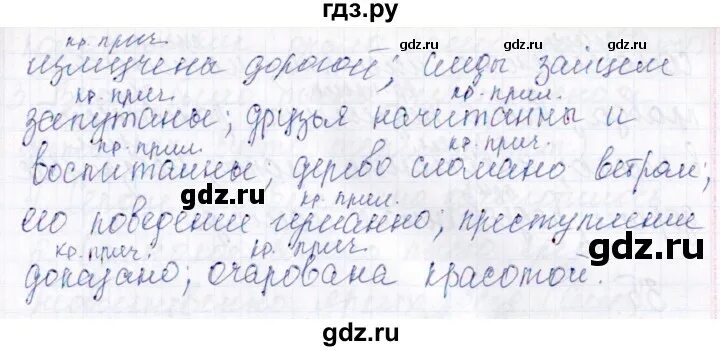 гдз.ру
кр. прич. gdz.ru gdz.ru
измучена дорогой; следы зайцем
кр. прич. кр. прил.
запутаны; друзья начитанны и
gdz.ru кр. прил. кр. прич.
воспитанны; дерево сломано ветром;
gdz.ru кр. прил.
его поведение германно; преступление
кр. прич. кр. прич. gdz.ru
доказано; очарована красотой.
gdz.ru gdz.ru